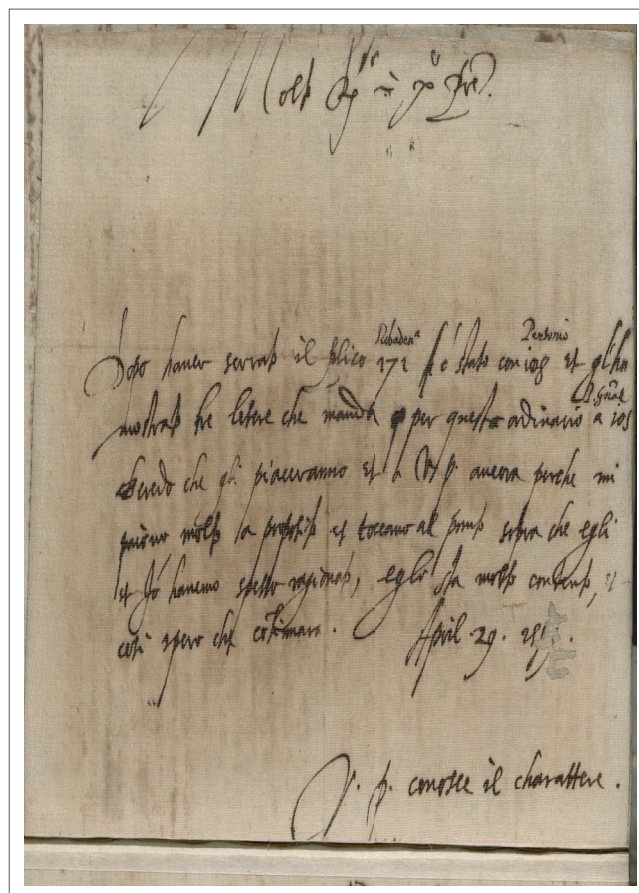 Molto Rdo in Xo Pre.
Ribadena Personio
Dopo haver serrato il plico 172 è stato con 108 et gli ha
P. Genal
mostrato tre letere che manda per questo ordinario a 105
Credo che gli piaceranno et à V. P. ancora perche mi
paiono molto a proposito et toccano al punto sopra che egli
et Jo havemo spesso ragionato, egli sta molto contento, et
cosi spero che continuara. April 29.
V. P. conosce il charattere.